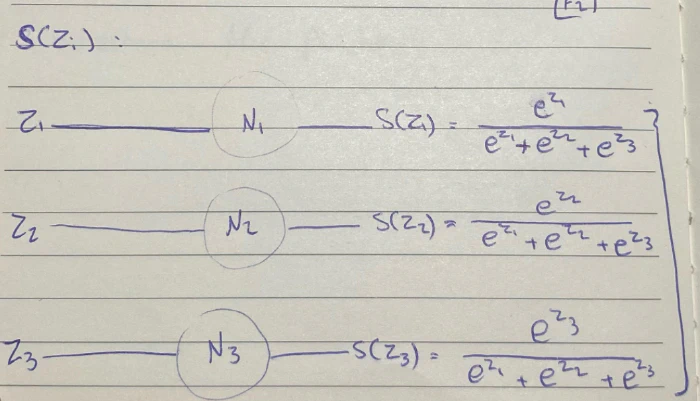 S(Zᵢ) :
Z₁ N₁ S(Z₁) = e^z₁ / (e^z₁ + e^z₂ + e^z₃)
Z₂ N₂ S(Z₂) = e^z₂ / (e^z₁ + e^z₂ + e^z₃)
Z₃ N₃ S(Z₃) = e^z₃ / (e^z₁ + e^z₂ + e^z₃)